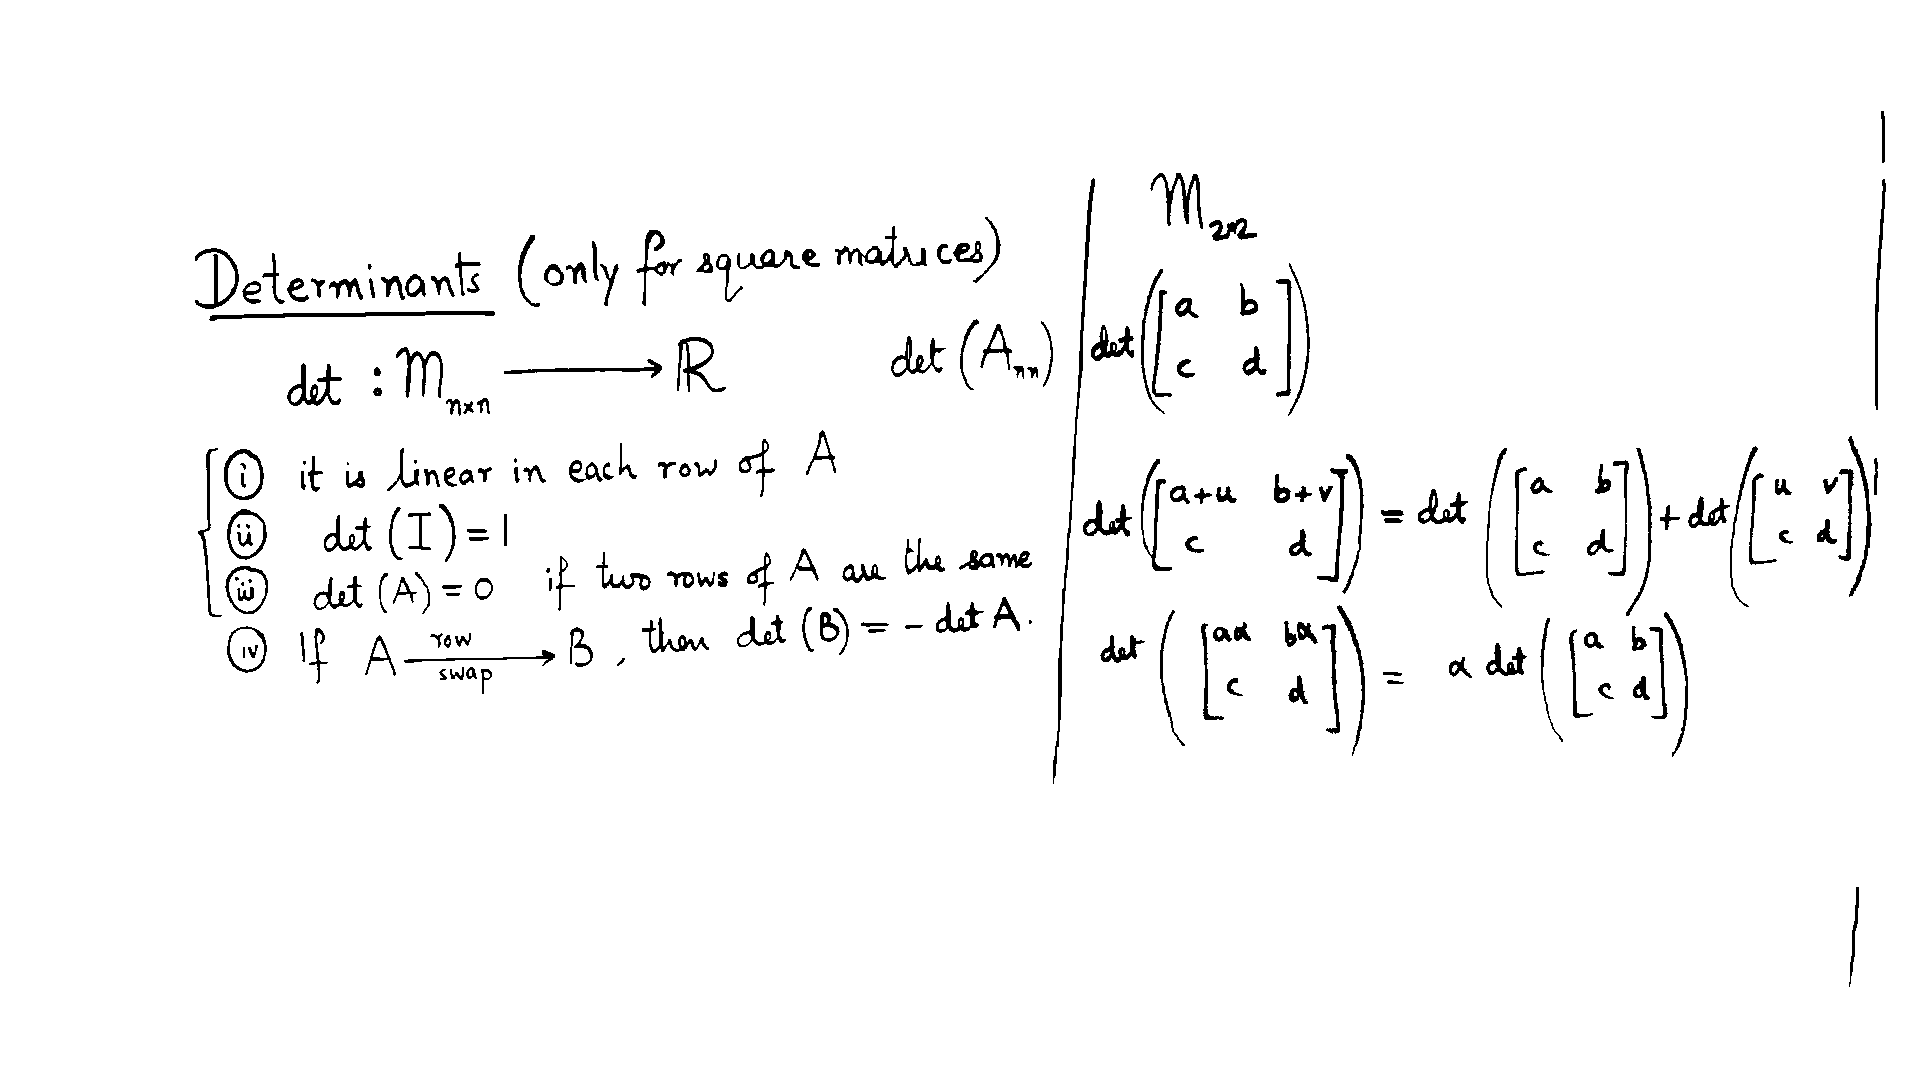 Determinants (only for square matrices)
det : M_{n×n} ⟶ ℝ det (A_{nn})
(i) it is linear in each row of A
(ii) det (I) = 1
(iii) det (A) = 0 if two rows of A are the same
(iv) If A —row swap→ B , then det (B) = - det A.
M_{2×2}
det ( [ a b
c d ] )
det ( [ a+u b+v
c d ] ) = det ( [ a b
c d ] ) + det ( [ u v
c d ] )
det ( [ aα bα
c d ] ) = α det ( [ a b
c d ] )